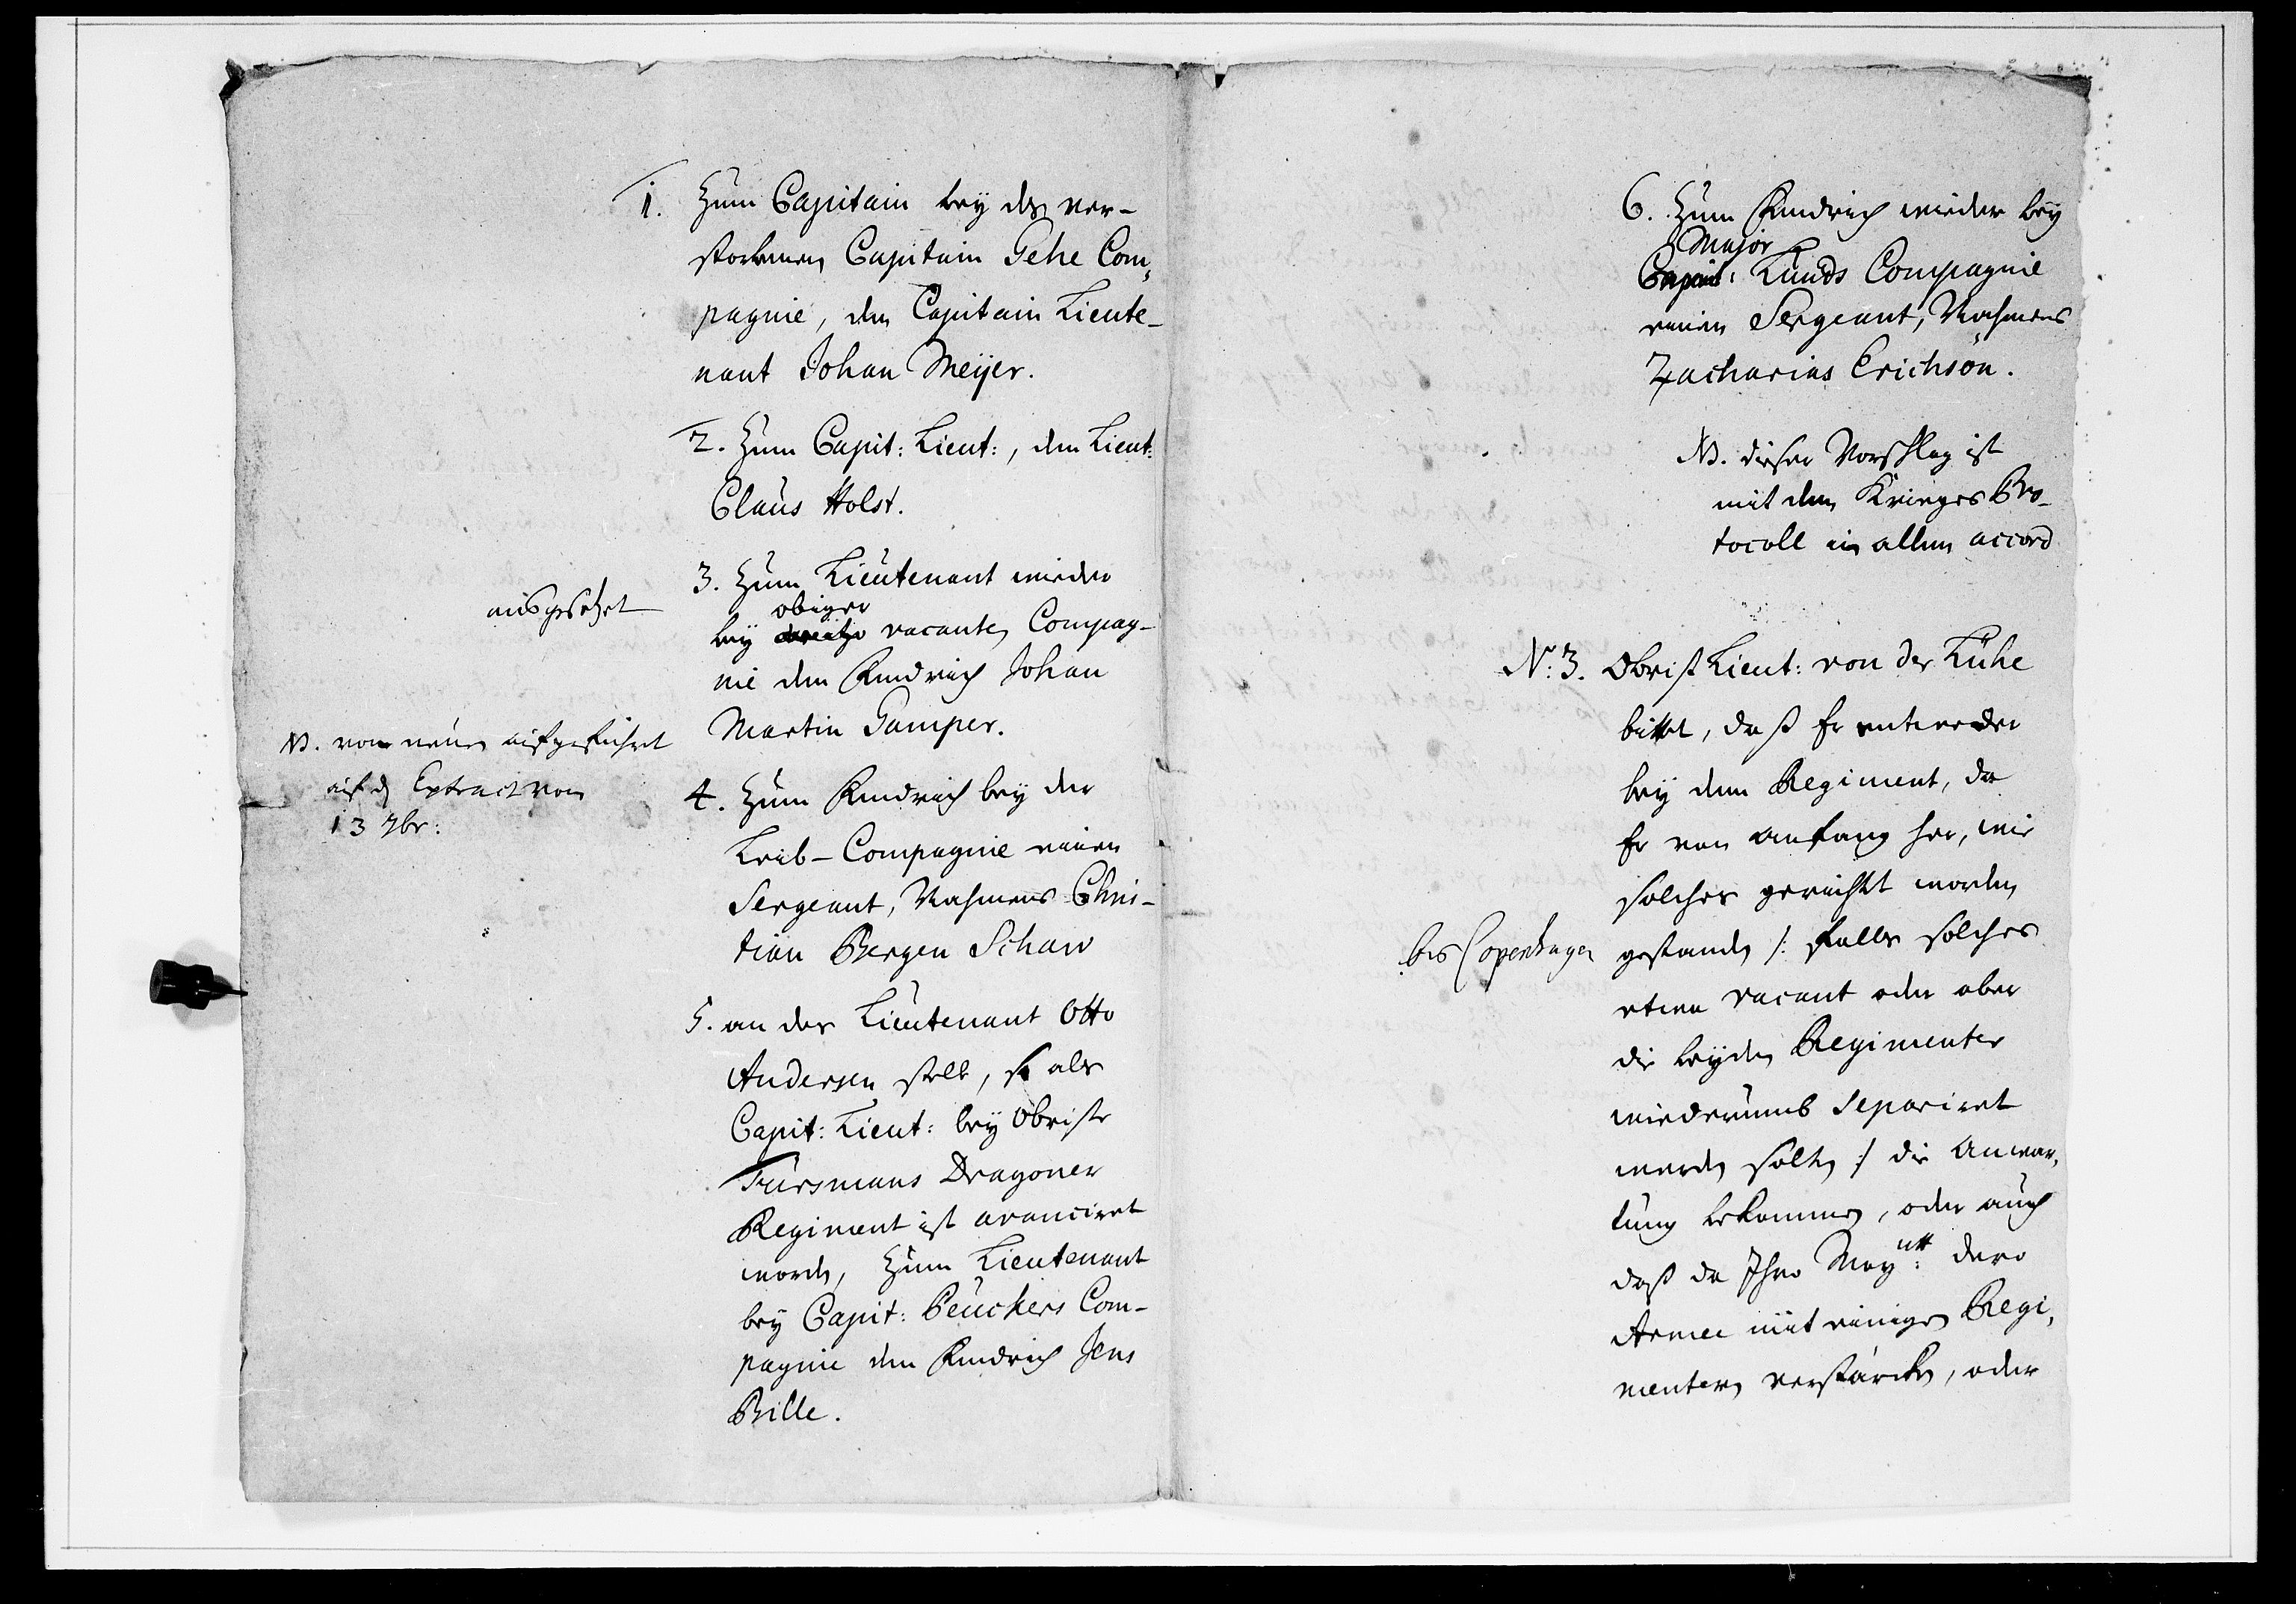 1. Zum Capitain bey des ver-
storbenen Capitain Gehe Com,
pagnie, den Capitain Lieute-
nant Johan Meÿer.
2. Zum Capit: Lieut:, den Lieut:
Claus Holst.
ausgesetzet
3. Zum Lieutenant wieder
obiger
bey vacanten Compag-
nie den Fendrich Johan
Martin Gamper.
NB. von neuen aufgeführet
auf d Extract von
13 7br:
4. Zum Fendrich bey der
Leib-Compagnie einen
Sergeant, Nahmens Chris-
tian Bergen Schaw
5. an des Lieutenant Otto
Andersen stelle, so als
Capit: Lieut: bey Obriste
Fürsmans Dragoner
Regiment ist avanciret
worden, Zum Lieutenant
bey Capit: Peuckers Com-
pagnie den Fendrich Jens
Bille.
6. Zum Fendrich wieder beÿ
Major
Capit: Lunds Compagnie
einen Sergeant, Nahmens
Zacharias Erichson.
NB. dieser Vorschlag ist
mit dem Krieges Pro-
tocoll in allem accord
No: 3. Obrist Lieut: von der Kühe
bittet, daß Er entweder
bey dem Regiment, da
Er von anfang her, wie
solches gerichtet worden
bis Copenhagen
gestanden /: Falls solches
etwa vacant oder aber
die beyden Regimenter
wiederumb separiret
werden solten :/ die Anwar,
tung bekommen, oder auch
daß da Ihro Maytt: dero
Armee mit einigen Regi,
mentern verstärcken, oder